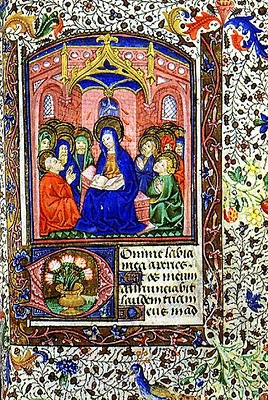 Domine labia
mea aperies.
Et os meum
annunciabit
laudem tuam
Deus in ad